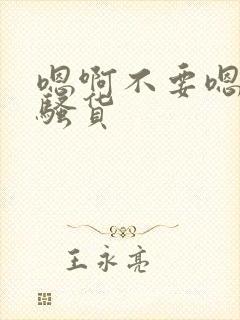 嗯啊不要嗯
骚货
王永亮